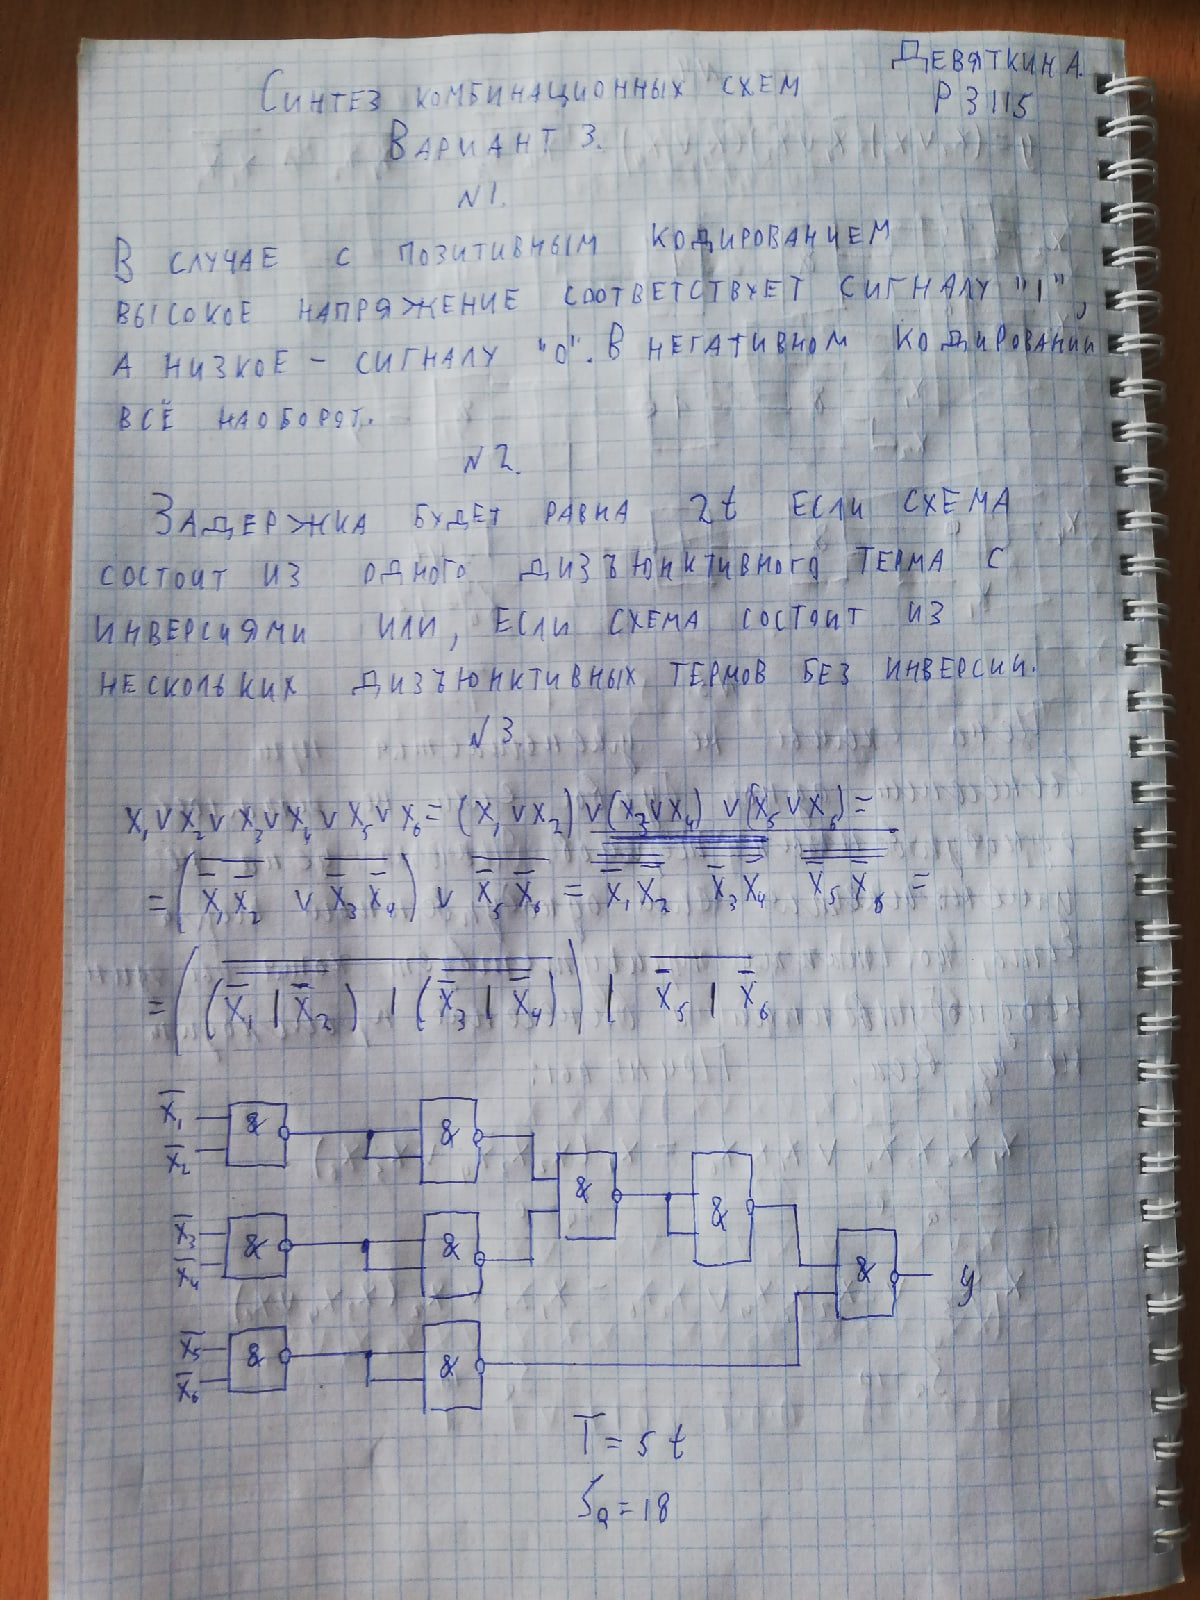 Девяткин А.
Синтез комбинационных схем
Р3115
Вариант 3.
№1.
В случае с позитивным кодированием
высокое напряжение соответствует сигналу "1",
а низкое – сигналу "0". В негативном кодировании
всё наоборот.
№2.
Задержка будет равна 2t если схема
состоит из одного дизъюнктивного терма с
инверсиями или, если схема состоит из
нескольких дизъюнктивных термов без инверсии.
№3
x₁ v x₂ v x₃ v x₄ v x₅ v x₆ = (x₁ v x₂) v (x₃ v x₄) v (x₅ v x₆) =
= (x̅₁ x̅₂ v x̅₃ x̅₄) v x̅₅ x̅₆ = x̅₁ x̅₂ x̅₃ x̅₄ x̅₅ x̅₆ =
= ((x̅₁ | x̅₂) | (x̅₃ | x̅₄)) | x̅₅ | x̅₆
x̅₁ & &
x̅₂ & &
x̅₃ & &
x̅₄ & y
x̅₅ & &
x̅₆
T = 5t
S_Q = 18